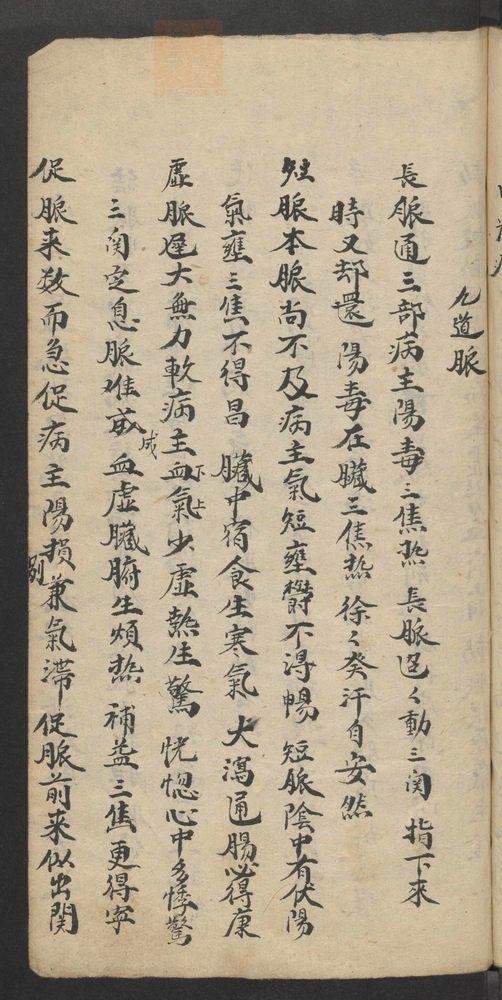 九道脈
長脈通三部病主陽毒三焦热 長脈迢々動三関 指下来
時又却還 陽毒在臟三焦热 徐々発汗自安然
短脈本脈尚不及病主氣短壅欝不得暢 短脈陰中有伏陽
氣壅三焦不得昌 臟中宿食生寒氣 大瀉通腸必得康
虛脈遲大無力軟病主血氣少虛热生驚 恍惚心中多悸驚
下上
三関定息脈难成 血虛臟腑生煩热 補益三焦更得寧
成
促脈来数而急促病主陽損兼氣滞 促脈前来似出関
別